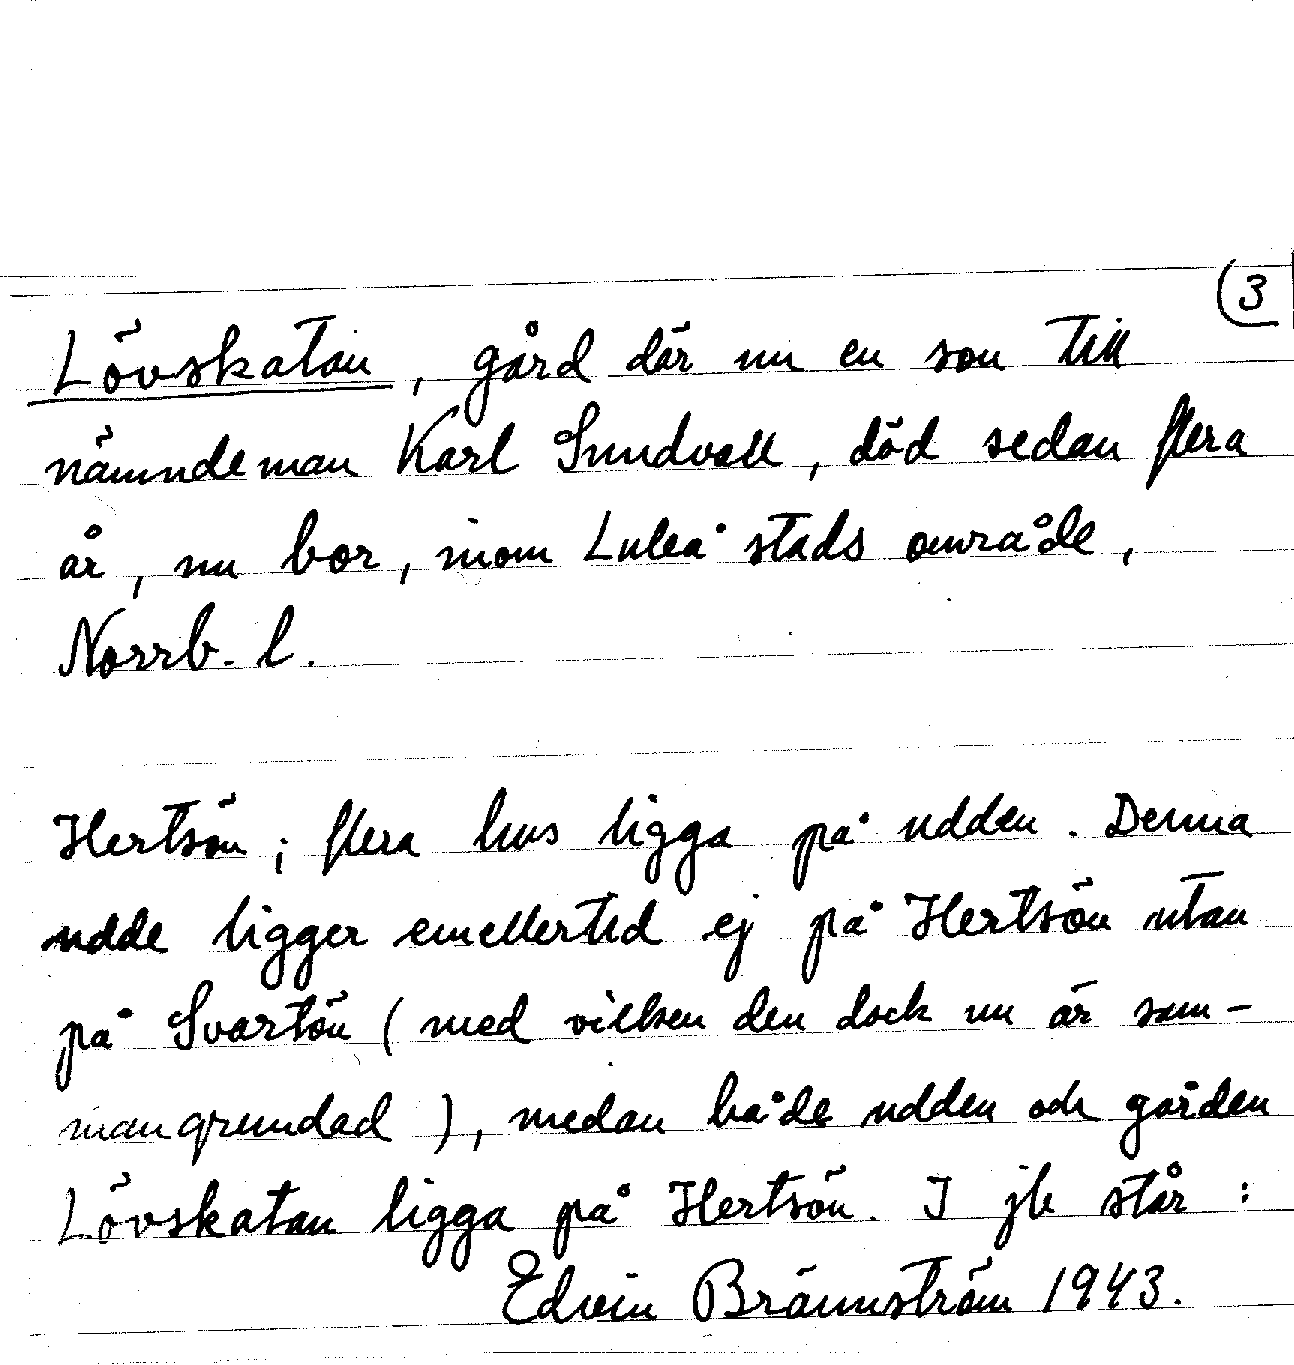 3
Lövskatan, gård där nu en son till
nämndeman Karl Sundvall, död sedan flera
år, nu bor, inom Luleå stads område,
Norrb. l.
Hertsön; flera hus ligga på udden. Denna
udde ligger emellertid ej på Hertsön utan
på Svartön (med vilken den dock nu är sam-
mangrundad), medan både udden och gården
Lövskatan ligga på Hertsön. I jb står:
Edvin Brännström 1943.